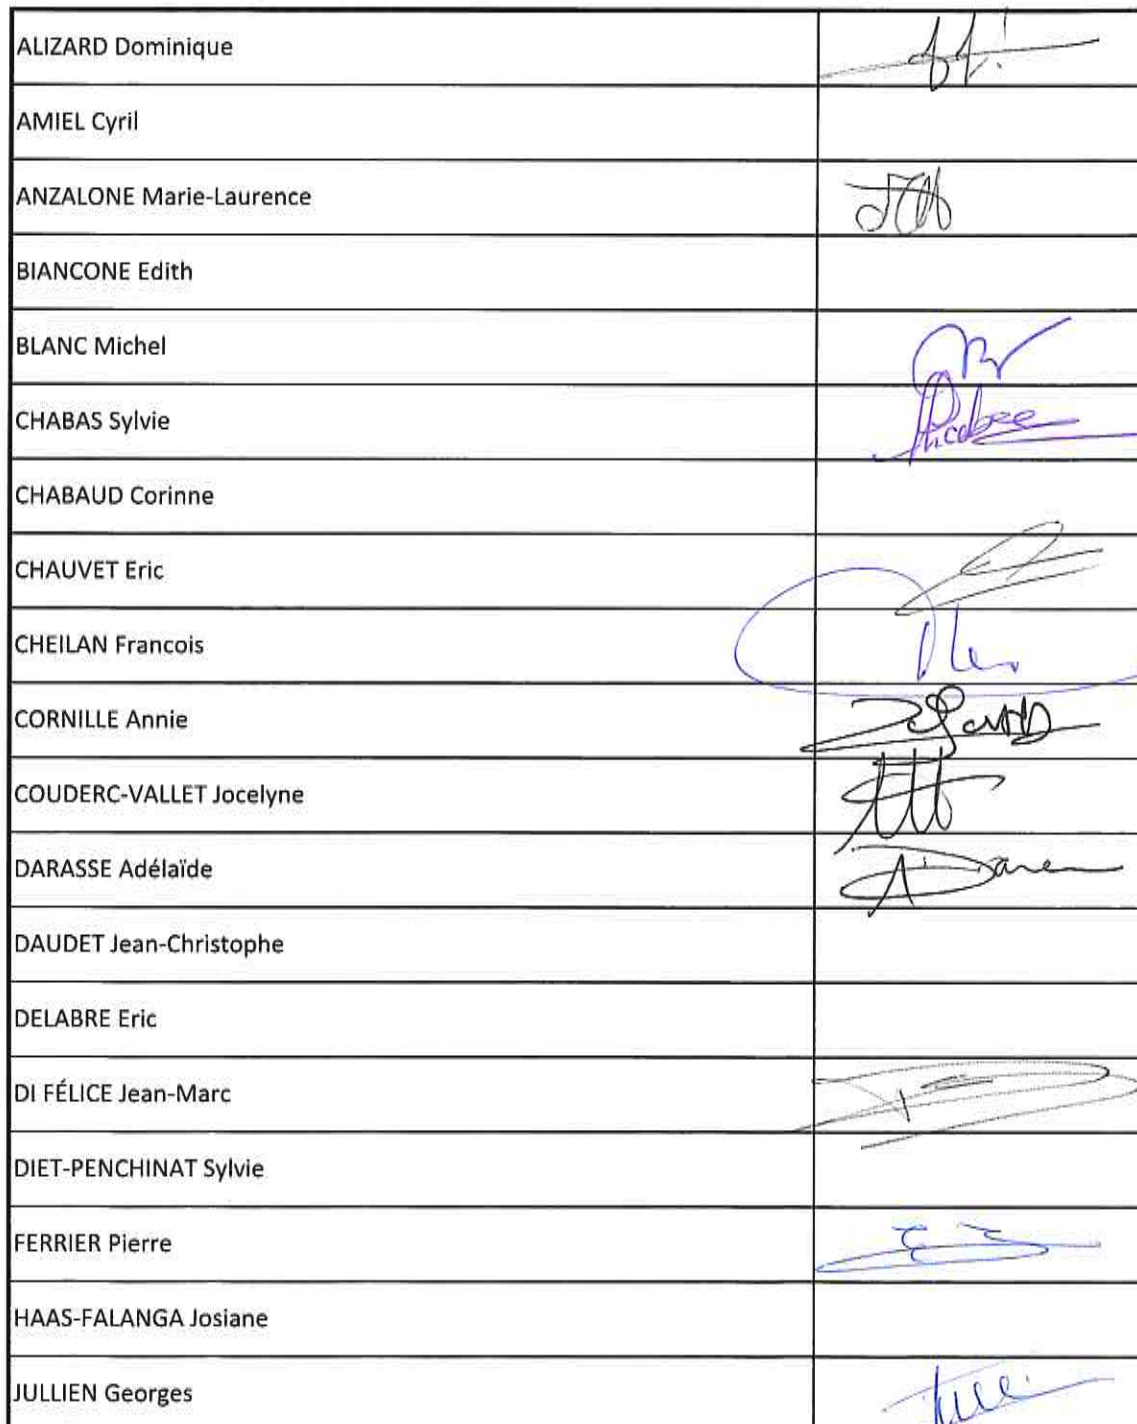 ALIZARD Dominique
AMIEL Cyril
ANZALONE Marie-Laurence
BIANCONE Edith
BLANC Michel
CHABAS Sylvie
CHABAUD Corinne
CHAUVET Eric
CHEILAN Francois
CORNILLE Annie
COUDERC-VALLET Jocelyne
DARASSE Adélaïde
DAUDET Jean-Christophe
DELABRE Eric
DI FÉLICE Jean-Marc
DIET-PENCHINAT Sylvie
FERRIER Pierre
HAAS-FALANGA Josiane
JULLIEN Georges